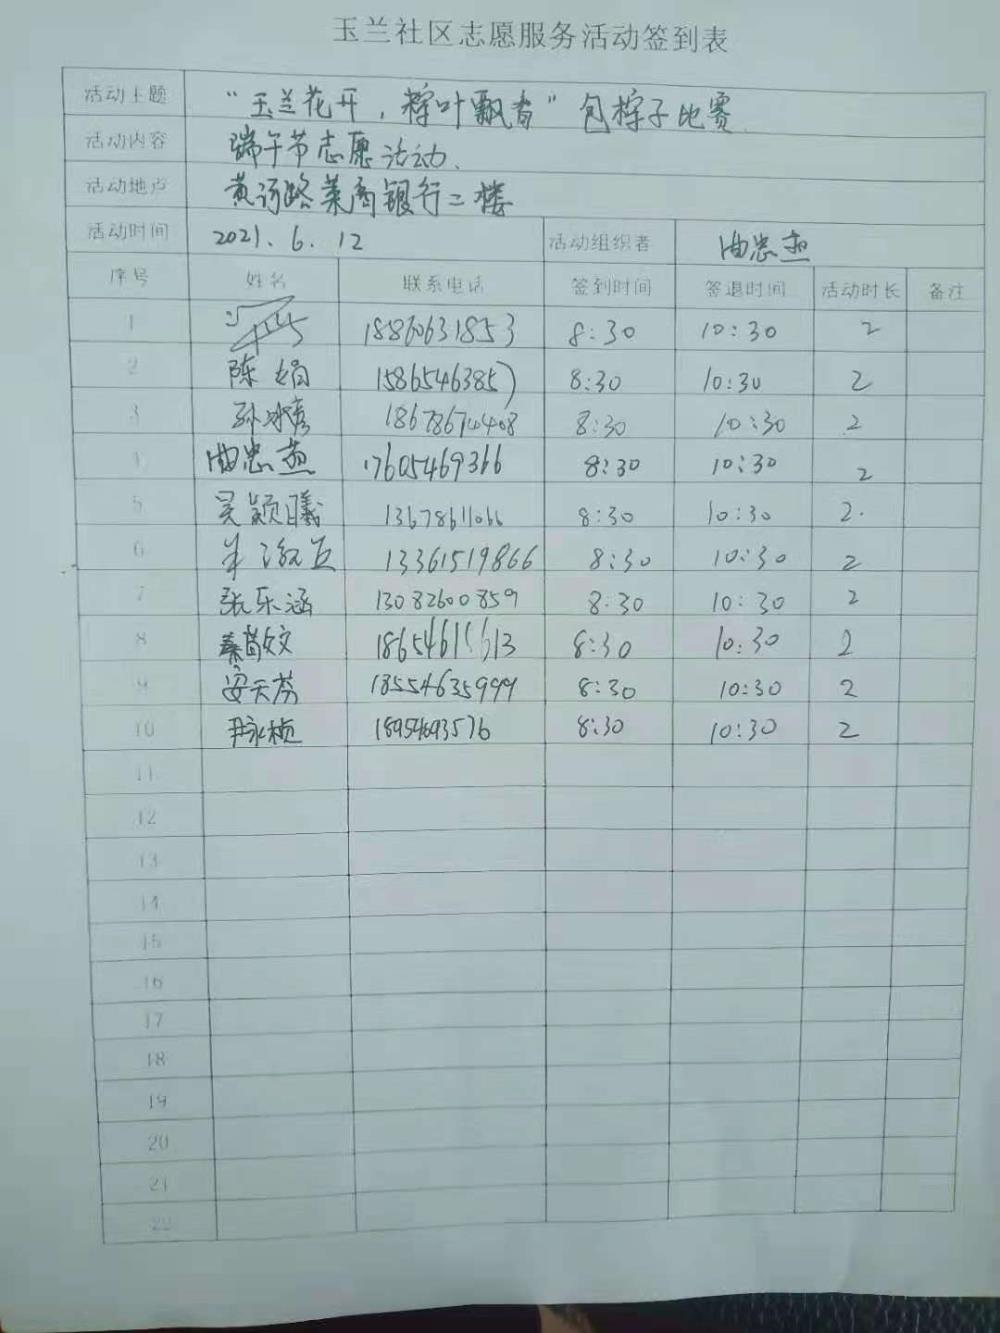 玉兰社区志愿服务活动签到表
活动主题 “玉兰花开，粽叶飘香”包粽子比赛
活动内容 端午节志愿活动、
活动地点 黄河路莱商银行二楼
活动时间 2021.6.12 活动组织者 曲忠燕
序号 姓名 联系电话 签到时间 签退时间 活动时长 备注
1 18860631853 8:30 10:30 2
2 陈娟 15865463857 8:30 10:30 2
3 孙冰彦 8:30 10:30 2
4 曲忠燕 17605469366 8:30 10:30 2
5 吴颖曦 13678611066 8:30 10:30 2.
6 13361519866 8:30 10:30 2
7 张乐涵 13082600859 8:30 10:30 2
8 8:30 10:30 2
9 18554635999 8:30 10:30 2
10 尹永桢 18954693576 8:30 10:30 2
11
12
13
14
15
16
17
18
19
20
21
22